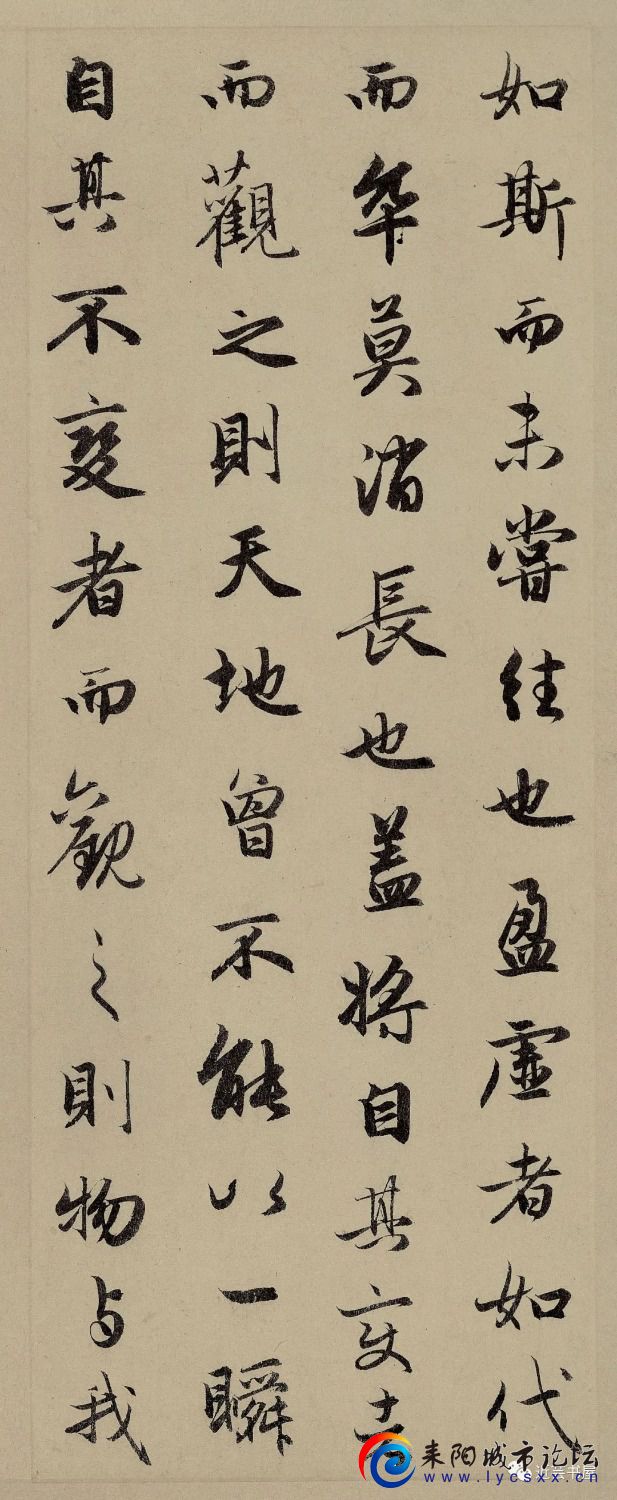 如斯而未嘗往也盈虛者如代
而卒莫消長也蓋將自其變者
而觀之則天地曾不能以一瞬
自其不變者而觀之則物与我
耒阳城市论坛
www.lycsxx.cn
书屋